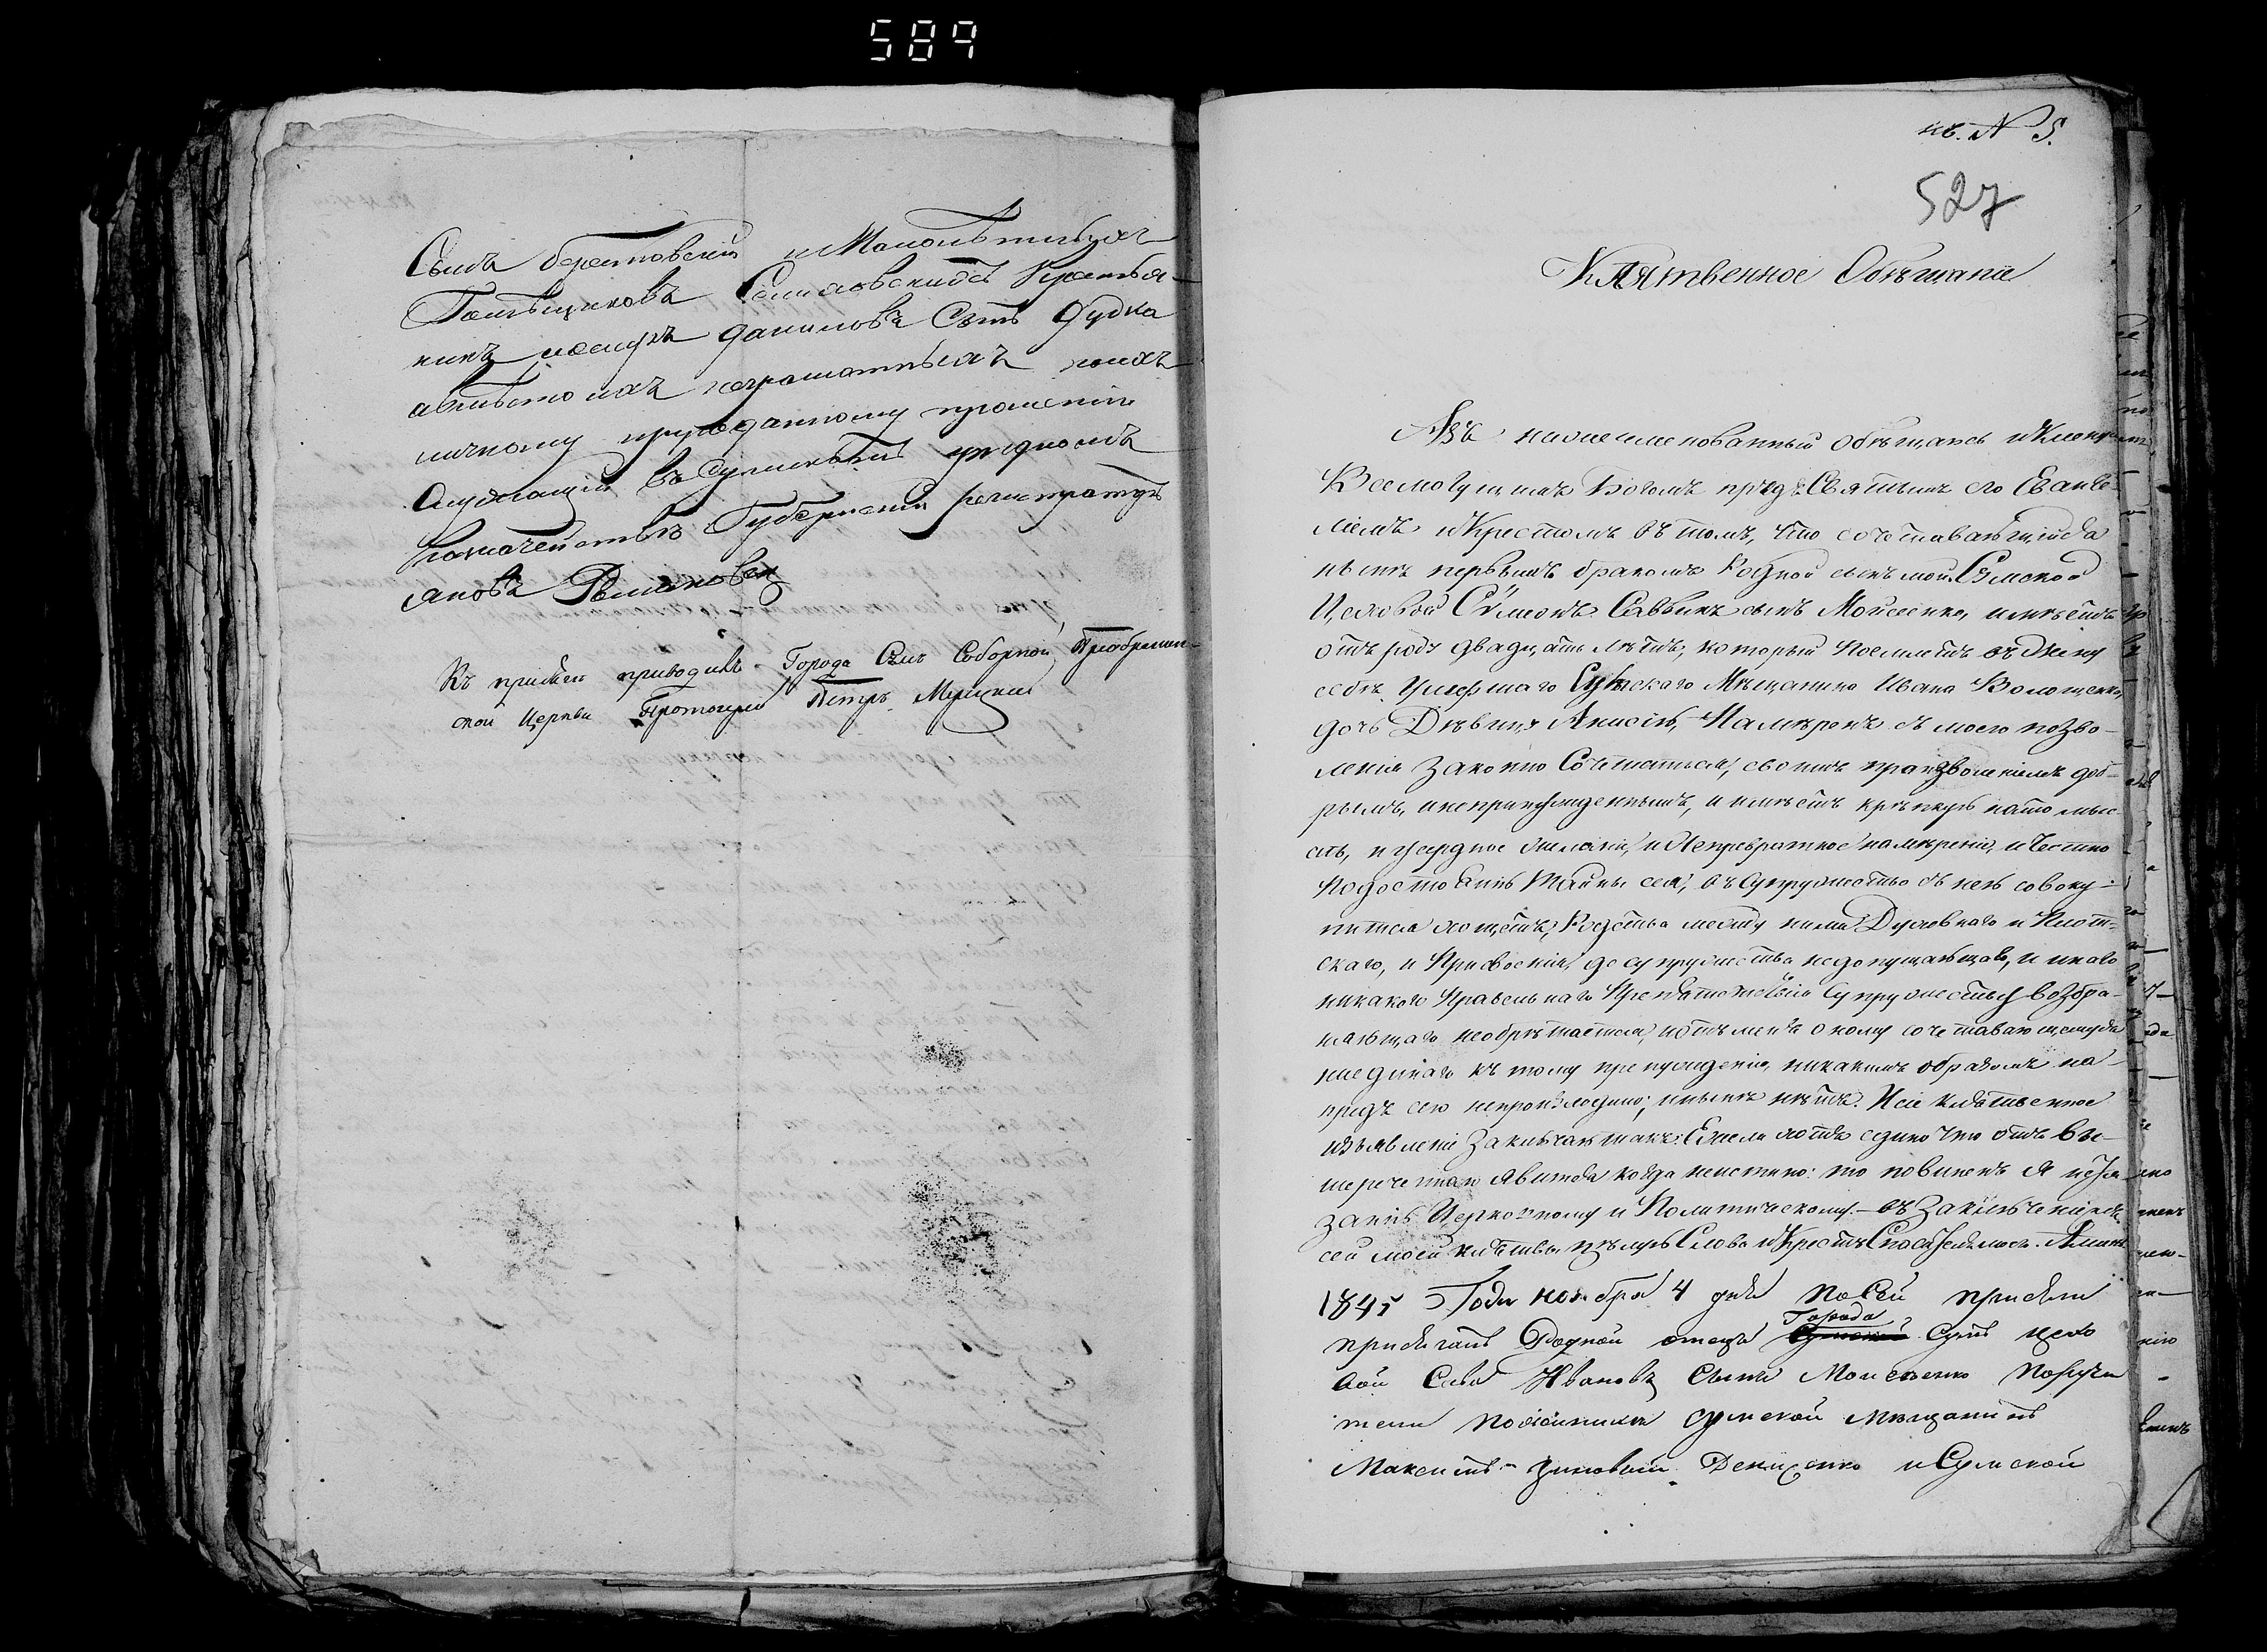 589
Сынъ
Помѣщиковъ Крестья-
нинъ Даниловъ Сынъ Дудка
а вмѣсто ихъ неграмотныхъ поихъ
личному прошенію
Служащій въ Сумскомъ уѣздномъ
Казначействѣ Губернскій регистраторъ
Яковъ
Къ присяги приводилъ Города Сумъ Соборной Преображен-
ской Церкви Протоіерей Петръ
къ. N 5.
527
Клятвенное Обѣщаніе
Азъ нижеименованный обѣщаюсь и клянусь
Всемогущимъ Богомъ предъ Святымъ его Еванге-
ліемъ и Крестомъ въ томъ, что сочетавающійся
нынѣ первымъ бракомъ Родной сынъ мой Сумской
Цеховой Сѵмеонъ Саввинъ сынъ Мойсеенко, имѣетъ
отъ роду двадцать лѣтъ, который поемлетъ въ жену
себѣ Умершаго Сумскаго Мѣщанина Ивана Волошенка,
дочь Дѣвицу Анисію, Намѣренъ съ моего позво-
ленія Законно Сочетаться, своимъ произволеніемъ доб-
рымъ, и непринужденнымъ, и имѣетъ крѣпкую на то мыс-
ль, и усердное желаніе, и Непревратное намѣреніе, и Честно
по достоянію Тайны сея, въ Супружество съ нею совоку-
питися хощетъ, Родства между ними Духовнаго и Плот-
скаго, и Присвоенія, до супружества недопущающаго, и инаго
никакого Правельнаго Препятствія Супружеству возбра-
няющаго необрѣтается, и отъ меня оному сочетавающемуся
ниединаго къ тому принужденія, никакимъ образомъ на-
предъ сего непроизходило; и нынѣ нѣтъ. И сіе клятвенное
изъявленіе Заключаю такъ: Ежели хотя едино что отъ вы-
шеречетаго явится когда неистинно: то повиненъ я нака-
занію Церковному и Политическому. — въ Заключеніе же
сей моей клятвы цѣлую Слова и Крестъ Спасителя моего. Аминь
1845 Года ноября 4 дня По Сей присяги
присягалъ Родной отецъ Города Сумъ цехо
вой Сава Ивановъ Сынъ Моисеенко Поручи
тели По женихѣ Сумской Мѣщанинъ
Максимъ Зиновьий Денисенко и Сумской